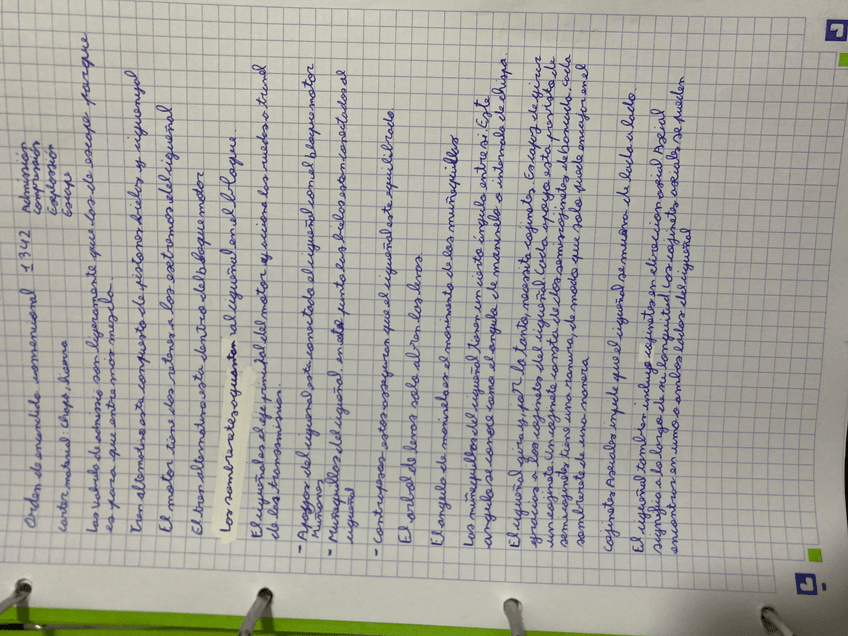 Orden de encendido convencional 1342 Admisión
compresión
Explosión
Escape
carter material: chapa, hierro
Las válvula de admisión son ligeramente que las de escape porque
es para que entre más mezcla.
Tren alternativo esta compuesto de pistones bielas y cigueñal
El motor tiene dos retenes a los extremos del cigueñal
El tren alternativo esta dentro del bloque motor
Los sombreretes aguantan al cigueñal en el bloque
El cigueñal es el eje principal del motor y acciona las ruedas a través
de las transmisiones.
- Apoyos del cigueñal esta conectado el cigueñal con el bloque motor
Muñones
- Muñequillas del cigueñal en este punto las bielas estan conectadas al
cigueñal
- Contrapesas estas aseguran que el cigueñal este equilibrado.
El arbol de levas solo abren las levas.
El angulo de manivela es el momento de las muñequillas
Las muñequillas del cigueñal tienen un cierto ángulo entre si. Este
angulo se conoce como el angulo de manivela o intervalo de chispa.
El cigueñal gira y, por lo tanto, necesita cojinetes. Es capaz de girar
gracias a los cojinetes del cigueñal. Cada apoyo esta provisto de
un cojinete. Un cojinete consta de dos semicojinetes de bancada. cada
semicojinetes tiene una ranura, de modo que solo puede encajar en el
sombrerete de una manera
Cojinetes Axiales impide que el cigueñal se mueva de lado a lado.
El cigueñal tambien incluye cojinetes en direccion axial. Axial
significa a lo largo de su longuitud. Los cojinetes axiales se pueden
encontrar en uno o ambos lados del cigueñal